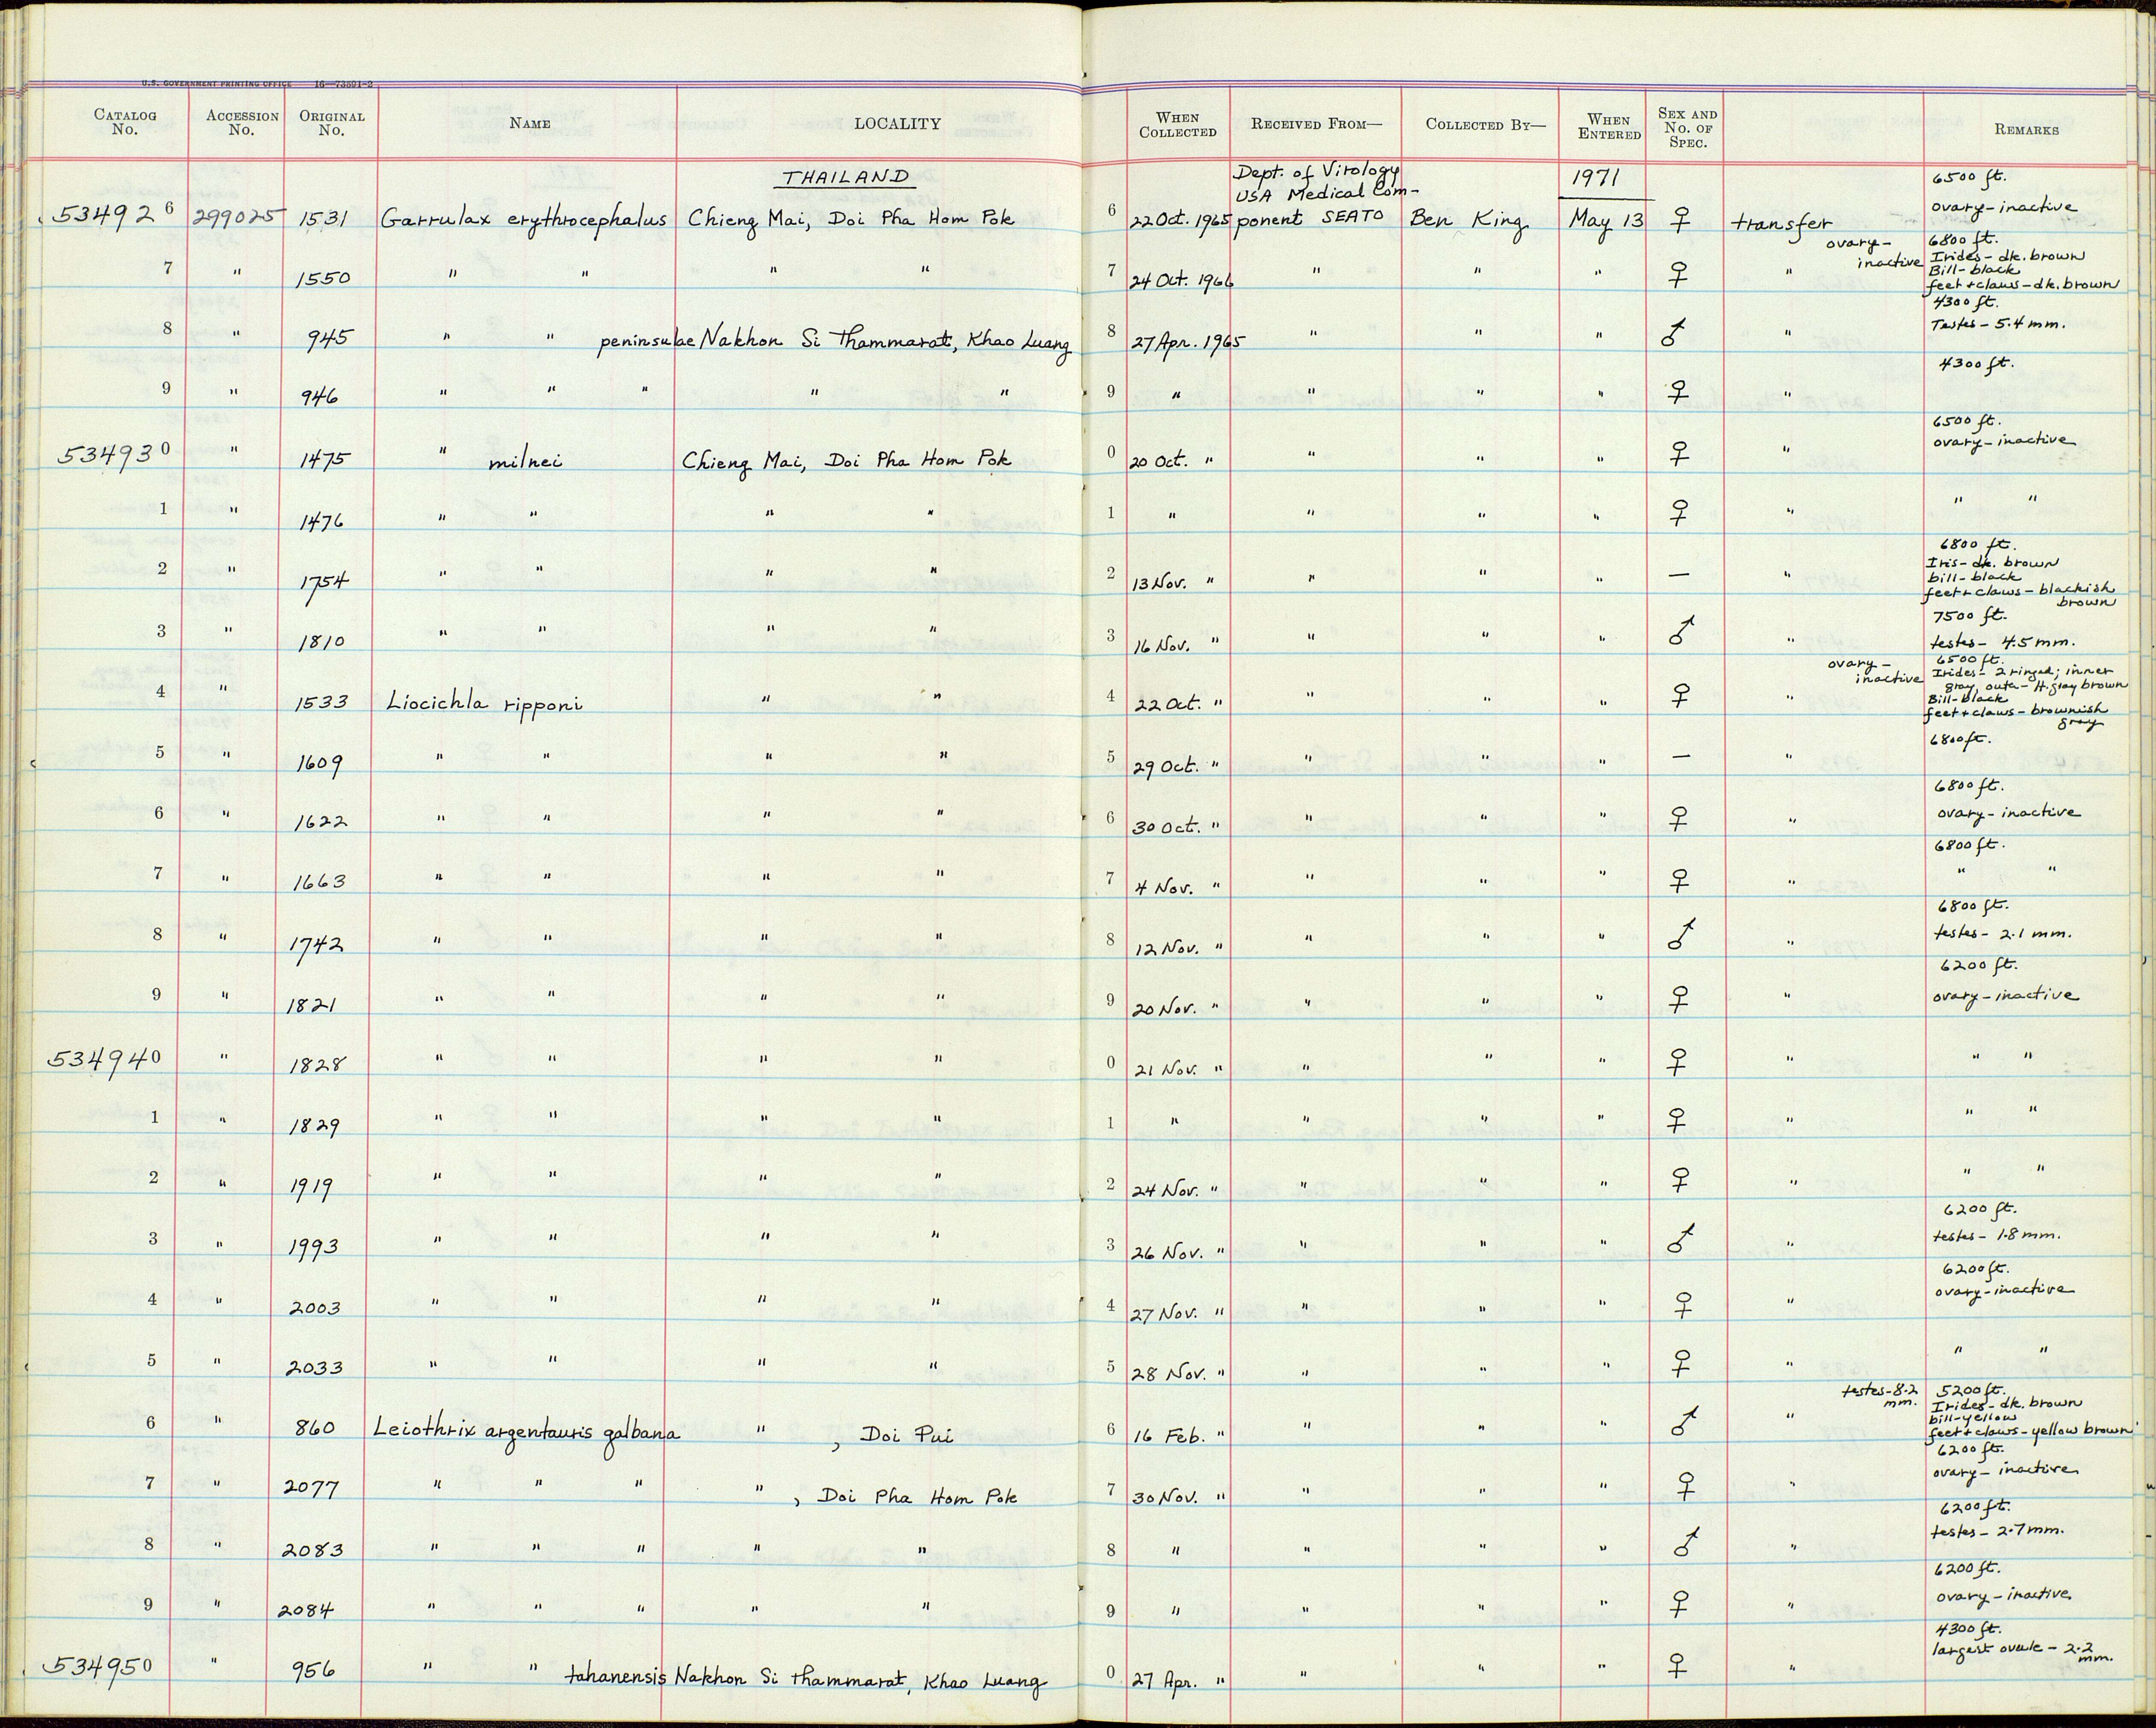 U.S. GOVERNMENT PRINTING OFFICE 16—73891-2
CATALOG No. ACCESSION No. ORIGINAL No. NAME LOCALITY WHEN COLLECTED RECEIVED FROM— COLLECTED BY— WHEN ENTERED SEX AND No. OF SPEC. REMARKS
THAILAND Dept. of Virology USA Medical Com- 1971 6500 ft.
534926 299025 1531 Garrulax erythrocephalus Chieng Mai, Doi Pha Hom Pok 6 22 Oct. 1965 ponent SEATO Ben King May 13 ♀ transfer ovary-inactive
7 " 1550 " " " " 7 24 Oct. 1966 " " " ♀ " ovary-inactive 6800 ft. Irides-dk. brown Bill-black feet+claws-dk. brown
8 " 945 " " peninsulae Nakhon Si Thammarat, Khao Luang 8 27 Apr. 1965 " " " ♂ " 4300 ft. Testes-5.4 mm.
9 " 946 " " " " " 9 " " " " ♀ " 4300 ft.
534930 " 1475 " milnei Chieng Mai, Doi Pha Hom Pok 0 20 Oct. " " " " ♀ " 6500 ft. ovary-inactive
1 " 1476 " " " " 1 " " " " ♀ " " "
2 " 1754 " " " " 2 13 Nov. " " " " — " 6800 ft. Iris-dk. brown bill-black feet+claws-blackish brown
3 " 1810 " " " " 3 16 Nov. " " " " ♂ " 7500 ft. testes- 4.5 mm.
4 " 1533 Liocichla ripponi " " 4 22 Oct. " " " " ♀ " ovary-inactive 6500 ft. Irides- 2 ringed; inner gray, outer-lt. gray brown Bill-black feet+claws-brownish gray
5 " 1609 " " " " 5 29 Oct. " " " " — " 6800 ft.
6 " 1622 " " " " 6 30 Oct. " " " " ♀ " 6800 ft. ovary-inactive
7 " 1663 " " " " 7 4 Nov. " " " " ♀ " 6800 ft. " "
8 " 1742 " " " " 8 12 Nov. " " " " ♂ " 6800 ft. testes- 2.1 mm.
9 " 1821 " " " " 9 20 Nov. " " " " ♀ " 6200 ft. ovary-inactive
534940 " 1828 " " " " 0 21 Nov. " " " " ♀ " " "
1 " 1829 " " " " 1 " " " " ♀ " " "
2 " 1919 " " " " 2 24 Nov. " " " " ♀ " " "
3 " 1993 " " " " 3 26 Nov. " " " " ♂ " 6200 ft. testes- 1.8 mm.
4 " 2003 " " " " 4 27 Nov. " " " " ♀ " 6200 ft. ovary-inactive
5 " 2033 " " " " 5 28 Nov. " " " " ♀ " " "
6 " 860 Leiothrix argentauris galbana " , Doi Pui 6 16 Feb. " " " " ♂ " testes-8.2 mm. 5200 ft. Irides-dk. brown bill-yellow feet+claws-yellow brown
7 " 2077 " " " " , Doi Pha Hom Pok 7 30 Nov. " " " " ♀ " 6200 ft. ovary-inactive
8 " 2083 " " " " " 8 " " " " ♂ " 6200 ft. testes- 2.7 mm.
9 " 2084 " " " " " 9 " " " " ♀ " 6200 ft. ovary-inactive
534950 " 956 " " tahanensis Nakhon Si Thammarat, Khao Luang 0 27 Apr. " " " " ♀ " 4300 ft. largest ovule- 2.2 mm.